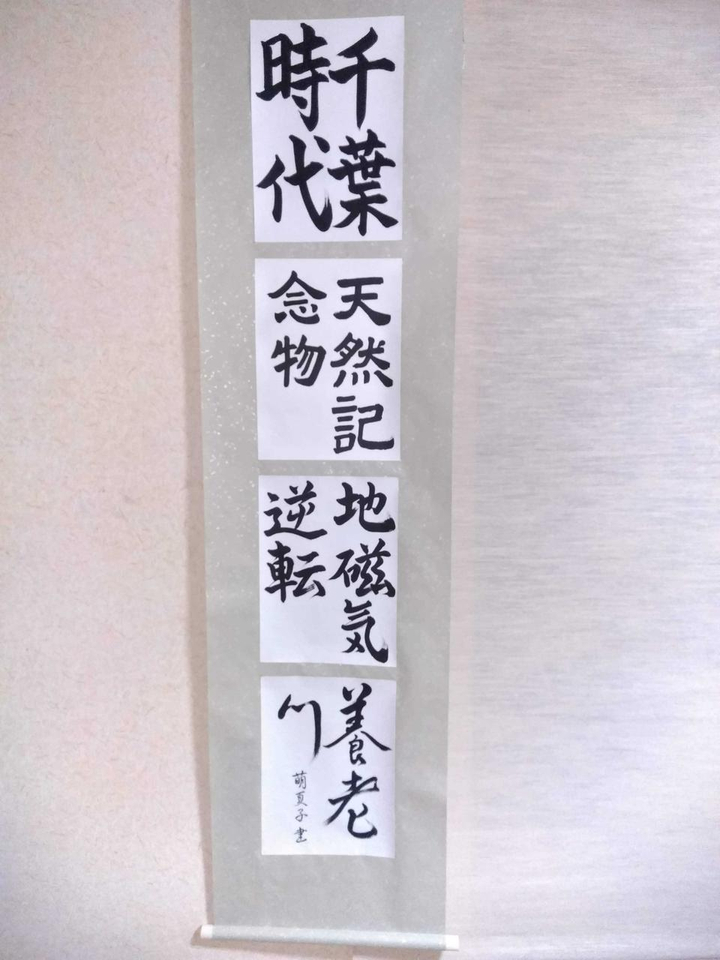 千葉
時代
天然記
念物
地磁気
逆転
養老
川
萌夏子書